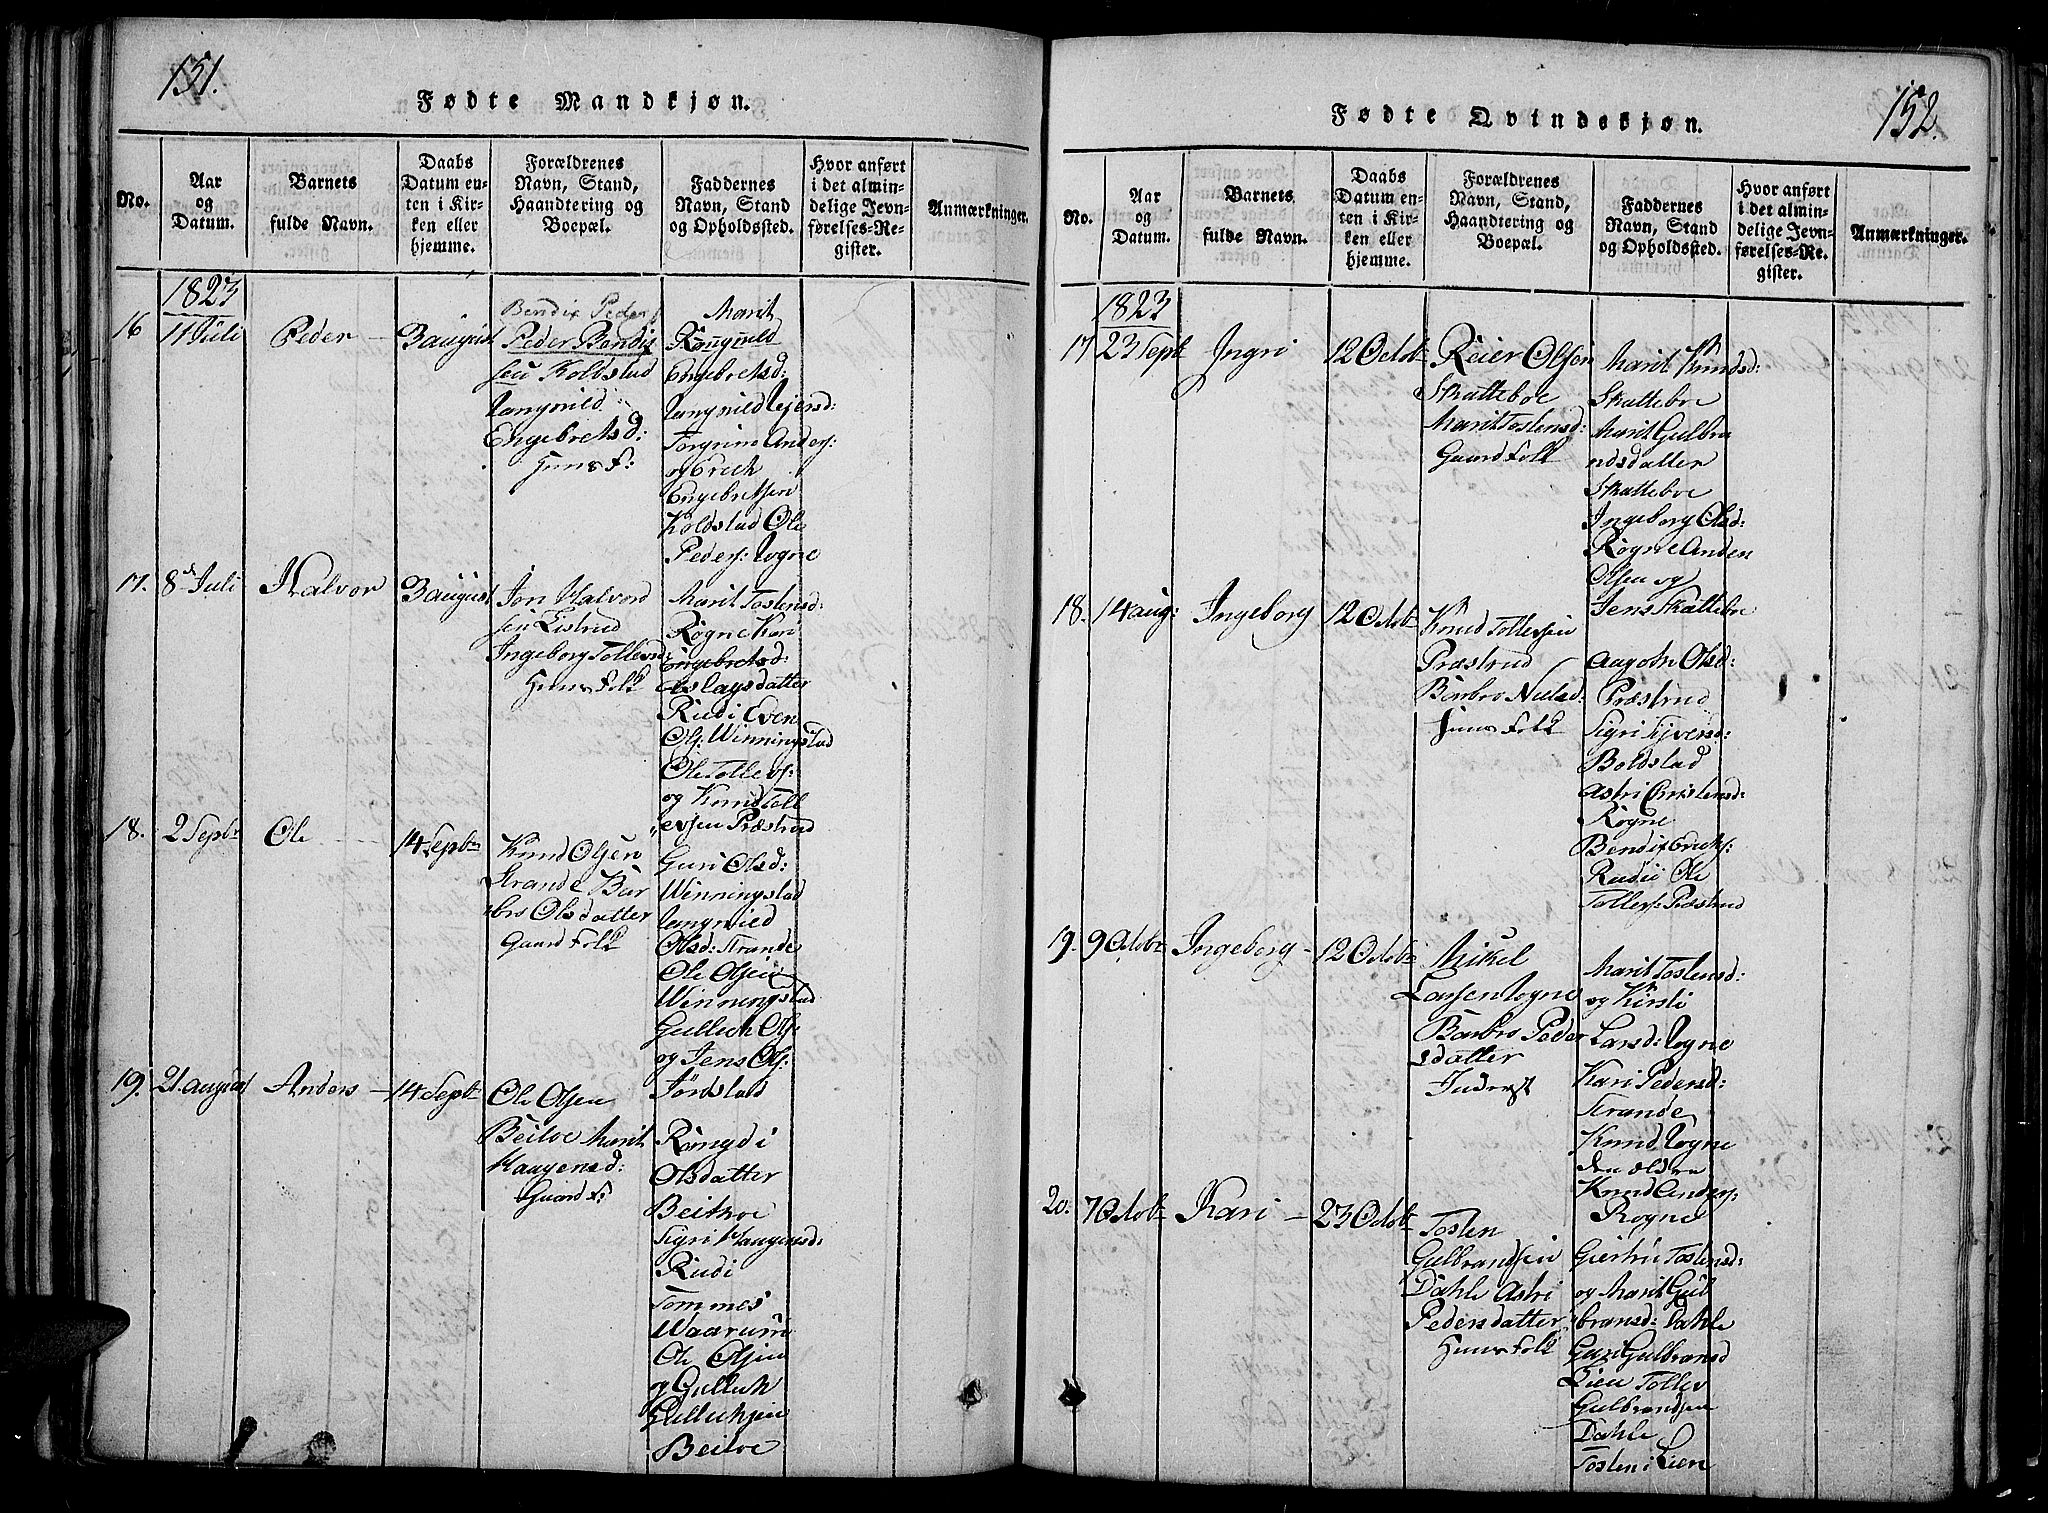 151.
Fødte Mandkjøn.
No.
Aar
og
Datum.
Barnets
fulde Navn.
Daabs
Datum en-
ten i Kir-
ken eller
hjemme.
Forældrenes
Navn, Stand,
Haandtering og
Boepæl.
Faddernes
Navn, Stand
og Opholdssted.
Hvor anført
i det almin-
delige Jevn-
førelses-Re-
gister.
Anmærkninger.
1823
16
11 Juli
Peder
3 august
Bendix Peders
Peder Bendix
sen Koldstad
Ragnild
Engebretsd:
Huus F:
Marit
Rangnild
Engebretsd:
Torgrim Anders:
og Erich
Engebretsen
Koldstad Ole
Peders: Rogne
17.
8 Juli
Halvor
3 august
Jon Halvord
sen Listrud
Ingeborg Tollevsd:
Huus Folk
Marit Tostensd:
Rogne Kari
Engebretsd:
Aslaysdatter
Rudi Even
Ols: Winningstad
Ole Tollevs:
og Knud Toll
evsen Præstrud
18.
2 Septbr
Ole
14 Septbr
Knud Olsen
Strande Bar
bro Olsdatter
Gaard Folk
Guri Olsd:
Winningstad
Rangnild
Olsd: Strande
Ole Olsen
Winningstad
Gulluk Ols:
og Jens Ols:
Jørdstad
19.
21. august
Anders
14 Septbr
Ole Olsen
Beitoe Marit
Haagensd:
Gaard F:
Rangdi
Olsdatter
Beithoe
Sigri Haagensd:
Rudi
Tommes
Waarum
Ole Olsen
og Gulluk
Gulluksen
Beitoe
152.
Fødte Qvindekjøn.
No.
Aar
og
Datum.
Barnets
fulde Navn.
Daabs
Datum en-
ten i Kir-
ken eller
hjemme.
Forældrenes
Navn, Stand,
Haandtering og
Boepæl.
Faddernes
Navn, Stand
og Opholdssted.
Hvor anført
i det almin-
delige Jevn-
førelses-Re-
gister.
Anmærkninger.
1823
17
23 Septbr
Ingri
12 Octobr
Reier Olsen
Skatteboe
Marit Tostensd:
Gaard Folk
Marit Knudsd:
Skatteboe
Marit Gulbra
ndsdatter
Skatteboe
Ingeborg Olsd:
Rogne Anders
Olsen og
Jens Skatteboe
18.
14 aug:
Ingeborg
12 Octobr
Knud Tollevsen
Præstrud
Barbro Nielsd
Huus Folk
Aagoht Olsd:
Præstrud
Sigri Sjversd:
Boldstad
Astri Christensd:
Rogne
Bendix Erichs:
Rudii Ole
Tollevs: Præstrud
19.
9 Octobr
Ingeborg
12 Octobr
Mikel
Larsen Rogne
Barbro Peder
sdatter
Inderst
Marit Tostensd:
og Kirsti
Larsd: Rogne
Kari Pedersd:
Strande
Knud Rogne
den Ældre
Knud Anders:
Rogne
20.
7 Octobr
Kari
23 Octobr
Tosten
Gulbrandsen
Dahle Astri
Pedersdatter
Huus Folk
Giertru Tostensd:
og Marit Gul
bransd: Dahle
Guri Gulbransd
Lien Tollev
Gulbrandsen
Dahle
Tosten i Lien